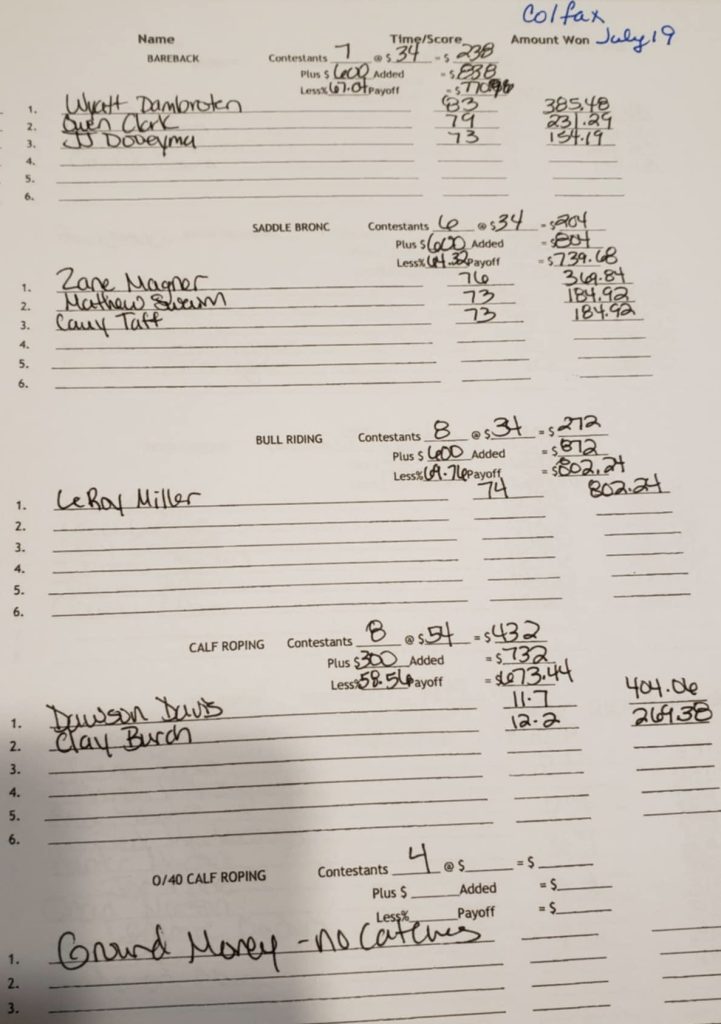 Colfax
Name Time/Score Amount Won July 19
BAREBACK Contestants 7 @ $ 34 = $ 238
Plus $ 600 Added = $ 838
Less% 67.04 Payoff = $ 770.96
1. Wyatt Dambroten 83 385.48
2. Owen Clark 79 231.29
3. JJ Doveyma 73 154.19
4.
5.
6.
SADDLE BRONC Contestants 6 @ $ 34 = $ 204
Plus $ 600 Added = $ 804
Less% 64.32 Payoff = $ 739.68
1. Zane Magner 76 369.84
2. Mathew Swarm 73 184.92
3. Cauy Taff 73 184.92
4.
5.
6.
BULL RIDING Contestants 8 @ $ 34 = $ 272
Plus $ 600 Added = $ 872
Less% 69.76 Payoff = $ 802.24
1. LeRoy Miller 74 802.24
2.
3.
4.
5.
6.
CALF ROPING Contestants 8 @ $ 54 = $ 432
Plus $ 300 Added = $ 732
Less% 58.56 Payoff = $ 673.44
1. Dawson Davis 11.7 404.06
2. Clay Burch 12.2 269.38
3.
4.
5.
6.
O/40 CALF ROPING Contestants 4 @ $ = $
Plus $ Added = $
Less% Payoff = $
1. Ground Money - no catches
2.
3.